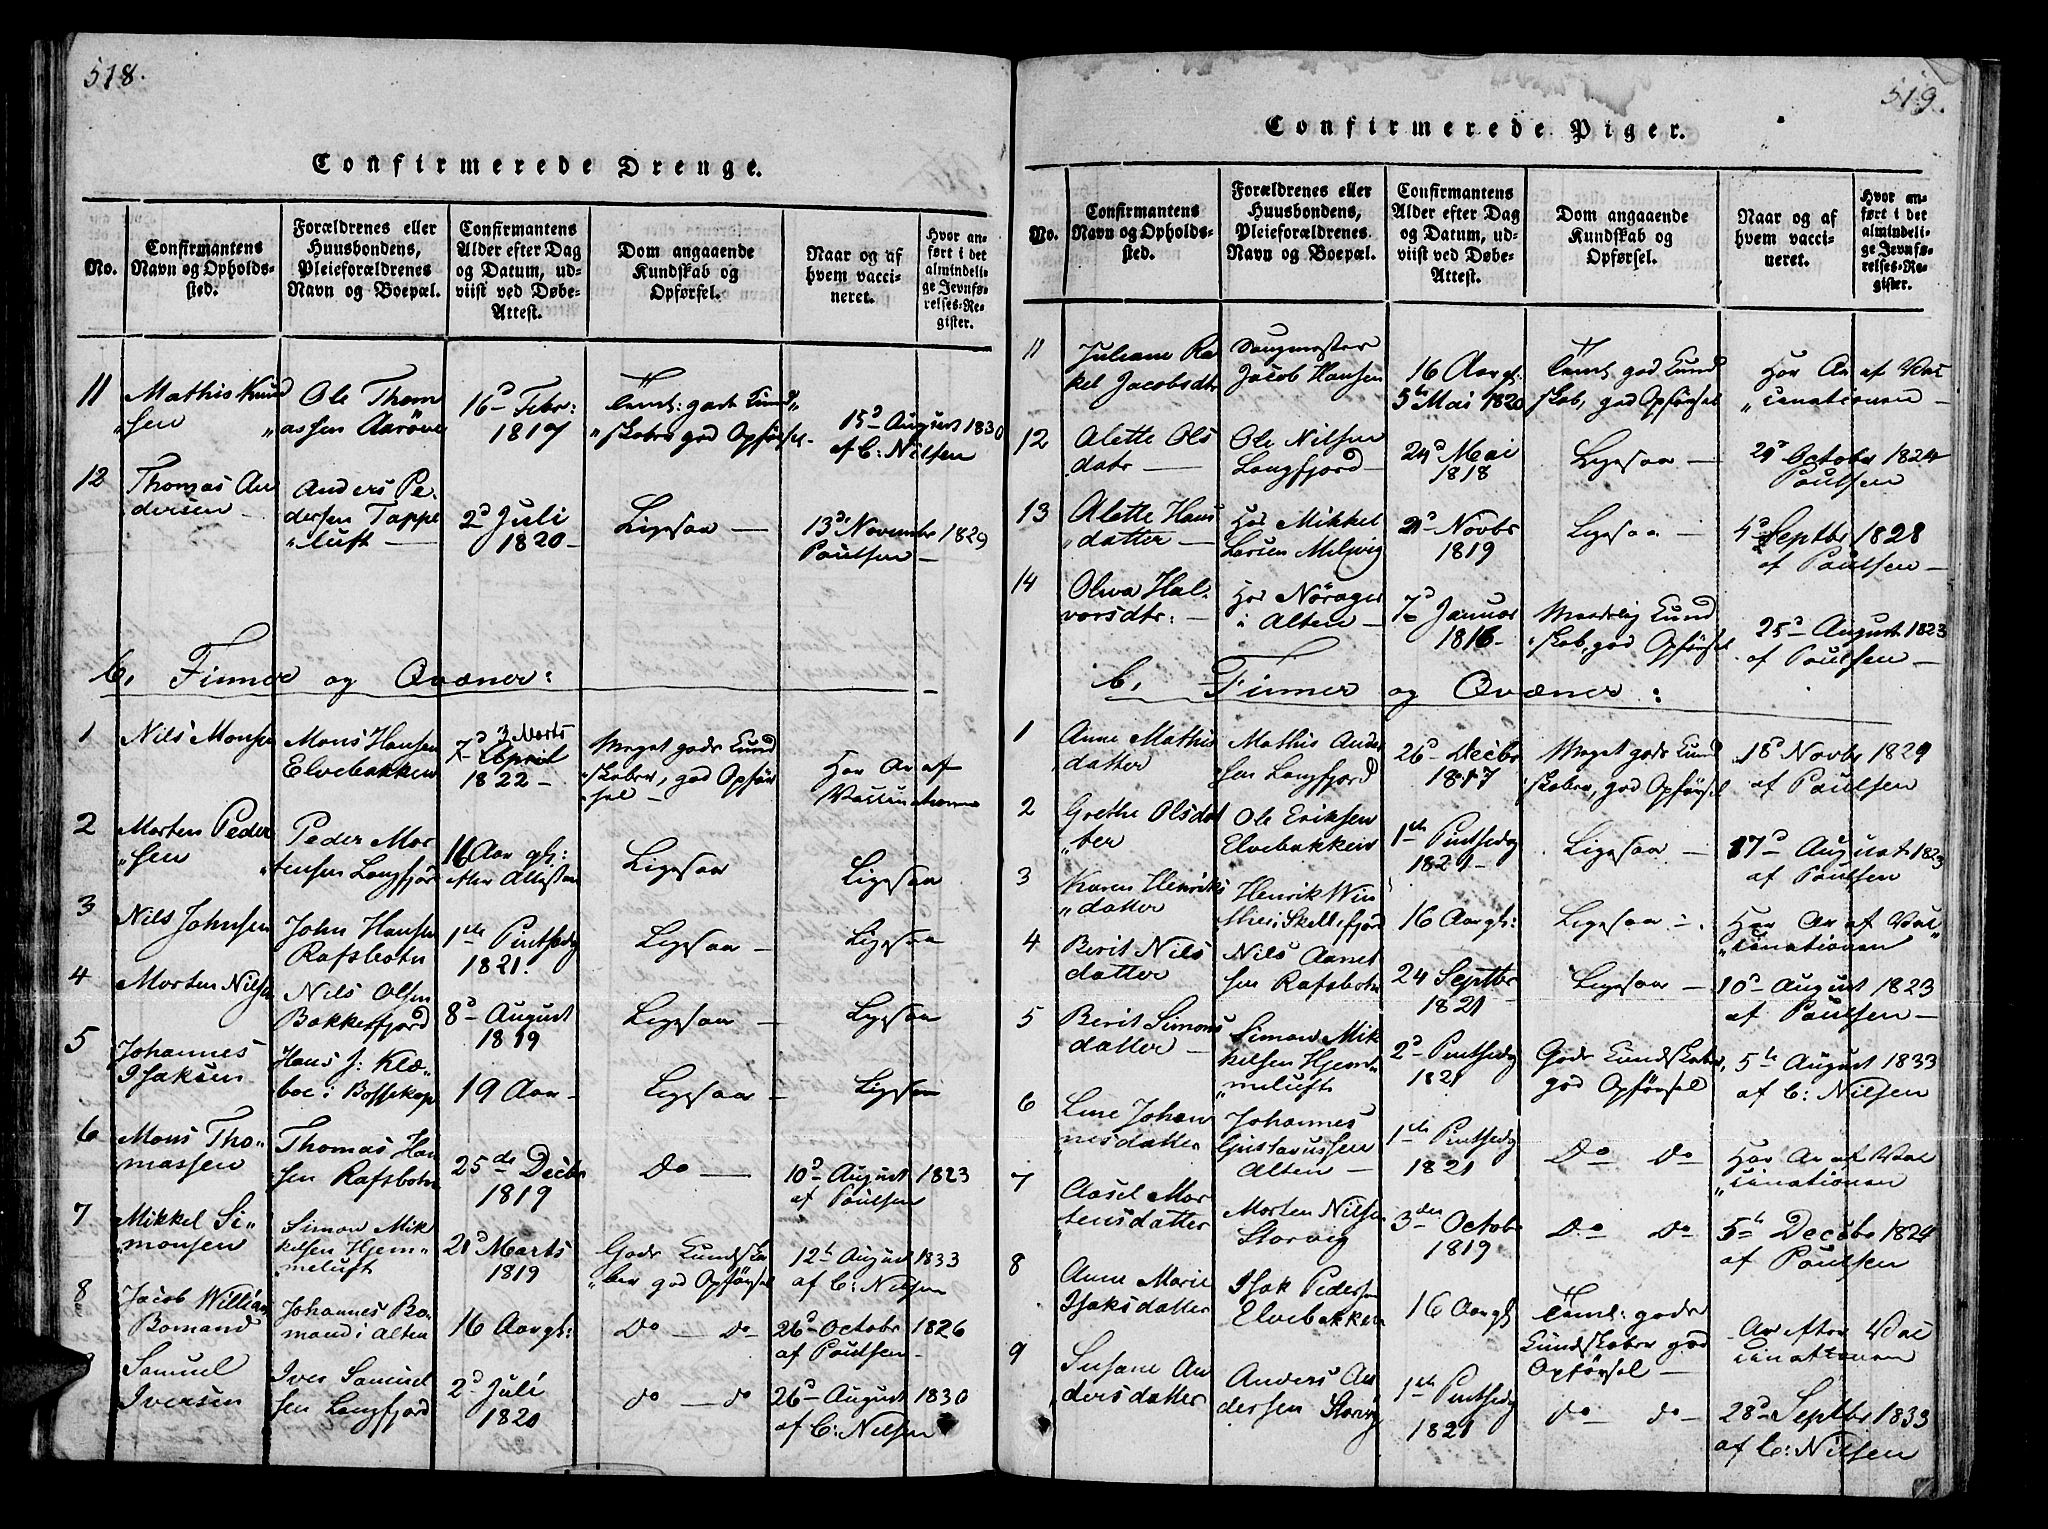 518.
Confirmerede Drenge.
No.
Confirmantens
Navn og Opholds-
sted.
Forældrenes eller
Huusbondens,
Pleieforældrenes
Navn og Boepæl.
Confirmantens
Alder efter Dag
og Datum, ud-
viist ved Døbe-
Attest.
Dom angaaende
Kundskab og
Opførsel.
Naar og af
hvem vacci-
neret.
Hvor an-
ført i det
almindeli-
ge Jevnfø-
relses-Re-
gister.
11
Mathis Knud
"sen
Ole Thom
assen Aaröve
16d Febr:
1817
gode Kund"
"skaber god Opförsel.
15d August 1830
af C: Nilsen
12
Thomas An
dersen
Anders Pe-
dersen Tappe
"luft
2d Juli
1820
Ligesaa
13d November 1829
Poulsen
b. Finner og Qvæner:
1
Nils Monsen
Mons Hansen
Elvebakken
7d April
3 Marts
1822
Meget gode Kund
"skaber, god Opför
"sel
Har Ar af
Vaccinationen
2
Morten Peder
"sen
Peder Mor
"tensen Langfjord
16 Aar gl:
efter Attesten
Ligesaa
Ligesaa
3
Nils Johnsen
John Hansen
Rafsbotn
1ste Pintsedag
1821.
Ligesaa
Ligesaa
4
Morten Nilsen
Nils Olsen
Bakkefjord
8d August
1819
Ligesaa
Ligesaa
5
Johannes
Isaksen
Hans J: Klæ-
boe i Bossekop
19 Aar
Ligesaa
Ligesaa
6
Mons Tho-
massen
Thomas Han
sen Rafsbotn
25de Decbr
1819
Do
10d August 1823
af Poulsen
7
Mikkel Si-
monsen
Simon Mik
kelsen Hjem-
"meluft
21d Marts
1819
Gode Kundska
"ber god Opförsel
12te August 1833
af C: Nilsen
8
Jacob William
Bomand
Johannes Bo
mand i Alten
16 Aar gl:
Do Do
26d Octobr 1826
af Poulsen
Samuel
Iversen
Iver Samuel
sen Langfjord
2d Juli
1820
do do
26d August 1830
af C: Nilsen
519.
Confirmerede Piger.
No.
Confirmantens
Navn og Opholds-
sted.
Forældrenes eller
Huusbondens,
Pleieforældrenes
Navn og Boepæl.
Confirmantens
Alder efter Dag
og Datum, ud-
viist ved Døbe-
Attest.
Dom angaaende
Kundskab og
Opførsel.
Naar og af
hvem vacci-
neret.
Hvor an-
ført i det
almindeli-
ge Jevnfø-
relses-Re-
gister.
11
Juliane Ra
kel Jacobsdtr
Jacob Hansen
16 Aar gl.
5te Mai 1820
god Kund
skab, god Opförsel
Har Ar af Vac
"cinationen
12
Alette Ols
datr
Ole Nilsen
Langfjord
24d Mai
1818
Ligesaa
29d October 1824
Poulsen
13
Alette Hans
"datter
Hos Mikkel
Larsen Melsvig
21d Novbr
1819
Ligesaa
4d Septbr 1828
af Poulsen
14
Olava Hal-
vorsdtr:
Hos Norager
i Alten
7d Januar
1816
Maadelig Kund
"skab, god Opförsel
25d August 1823
af Poulsen
b. Finner og Qvæner:
1
Anne Mathis
datter
Mathis Ander
sen Langfjord
26d Decbr
1817
Meget gode Kund
"skaber, god Opförsel
18d Novbr 1829
af Poulsen
2
Grethe Olsdat
"ter
Ole Eriksen
Elvebakken
1ste Pintsedag
1821
Ligesaa
17d August 1823
af Poulsen
3
Karen Henriks
"datter
Henrik Win
ther i Skillefjord
16 Aar gl:
Ligesaa
Har Ar af Vac"
"cinationen
4
Berit Nils
datter
Nils Aanet
sen Rafsbotn
24 Septbr
1821
Ligesaa
10d August 1823
af Poulsen
5
Berit Simons
datter
Simon Mik
kelsen Hjem-
"meluft
2d Pintsedag
1821
Gode Kundskaber,
god Opförsel
5te August 1833
af C: Nilsen
6
Lene Johan
nesdatter
Johannes
Gustavussen
Alten
1ste Pintsedag
1821
Do Do
Har Ar af Vac
"cinationen
7
Aasel Mor
tensdatter
Morten Nilsen
Storvig
3die October
1819
Do Do
5te Decebr 1824
af Poulsen
8
Anne Marie
Isaksdatter
Isak Pedersen
Elvebakken
16 Aar gl
gode
Kundskaber god
Opförsel
Ar efter Vac
cinationen
9
Susane An
dersdatter
Anders An
dersen Storvig
1ste Pintsedag
1821
do do
28d Septbr 1833
af C: Nilsen